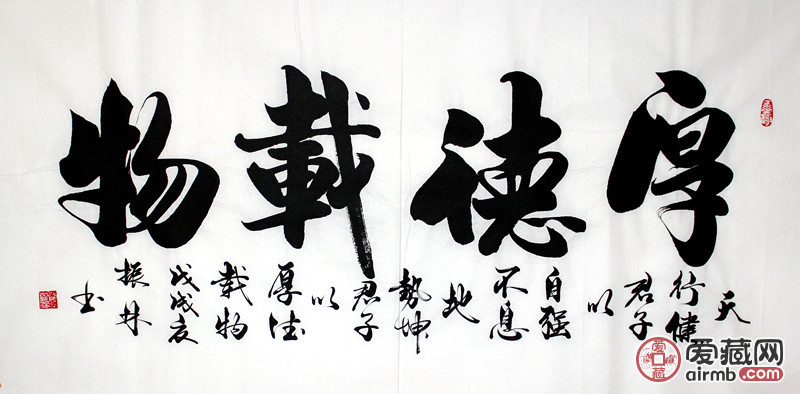 厚德載物
天
行健
君子
以
自强
不息
地
勢坤
君子
以
厚德
載物
戊戌夏
振林
书
爱藏网
airmb.com